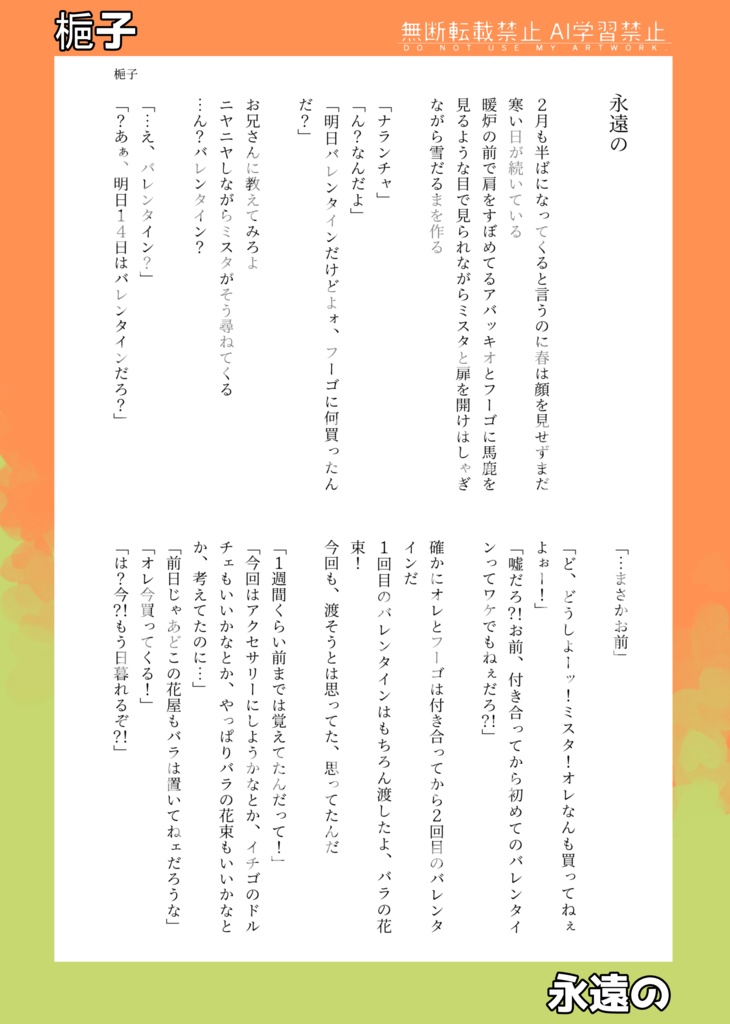 梔子
無断転載禁止 AI学習禁止
DO NOT USE MY ARTWORK.
梔子
永遠の
2月も半ばになってくると言うのに春は顔を見せずまだ
寒い日が続いている
暖炉の前で肩をすぼめてるアバッキオとフーゴに馬鹿を
見るような目で見られながらミスタと扉を開けはしゃぎ
ながら雪だるまを作る
「ナランチャ」
「ん?なんだよ」
「明日バレンタインだけどよォ、フーゴに何買ったん
だ?」
お兄さんに教えてみろよ
ニヤニヤしながらミスタがそう尋ねてくる
…ん?バレンタイン?
「…え、バレンタイン?」
「?あぁ、明日14日はバレンタインだろ?」
「…まさかお前」
「ど、どうしよーッ!ミスタ!オレなんも買ってねぇ
よぉー!」
「嘘だろ?!お前、付き合ってから初めてのバレンタイ
ンってワケでもねぇだろ?!」
確かにオレとフーゴは付き合ってから2回目のバレンタ
インだ
1回目のバレンタインはもちろん渡したよ、バラの花
束!
今回も、渡そうとは思ってた、思ってたんだ
「1週間くらい前までは覚えてたんだって!」
「今回はアクセサリーにしようかなとか、イチゴのドル
チェもいいかなとか、やっぱりバラの花束もいいかなと
か、考えてたのに…」
「前日じゃあどこの花屋もバラは置いてねェだろうな」
「オレ今買ってくる!」
「は?今?!もう日暮れるぞ?!」
永遠の